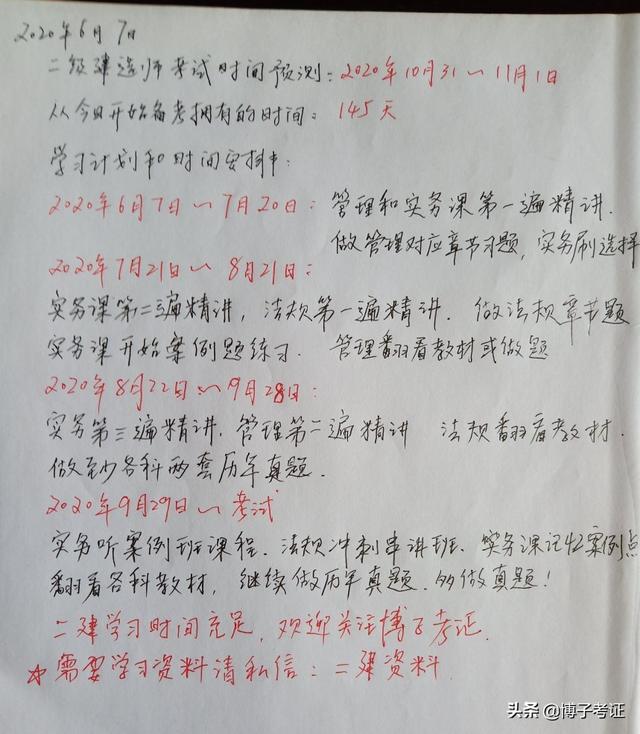 2020年6月7日
二级建造师考试时间预测：2020年10月31～11月1日
从今日开始备考拥有的时间：145天
学习计划和时间安排表：
2020年6月7日～7月20日：管理和实务课第一遍精讲.
做管理对应章节习题，实务刷选择
2020年7月21日～8月21日：
实务课第二遍精讲，法规第一遍精讲. 做法规章节题
实务课开始案例题练习. 管理翻看教材或做题
2020年8月22日～9月28日：
实务第三遍精讲. 管理第二遍精讲 法规翻看教材.
做至少各科两套历年真题.
2020年9月29日～考试
实务听案例班课程. 法规冲刺串讲班. 实务课记忆案例点
翻看各科教材，继续做历年真题. 多做真题！
二建学习时间充足，欢迎关注博子考证.
☆需要学习资料请私信：二建资料.
头条 @博子考证